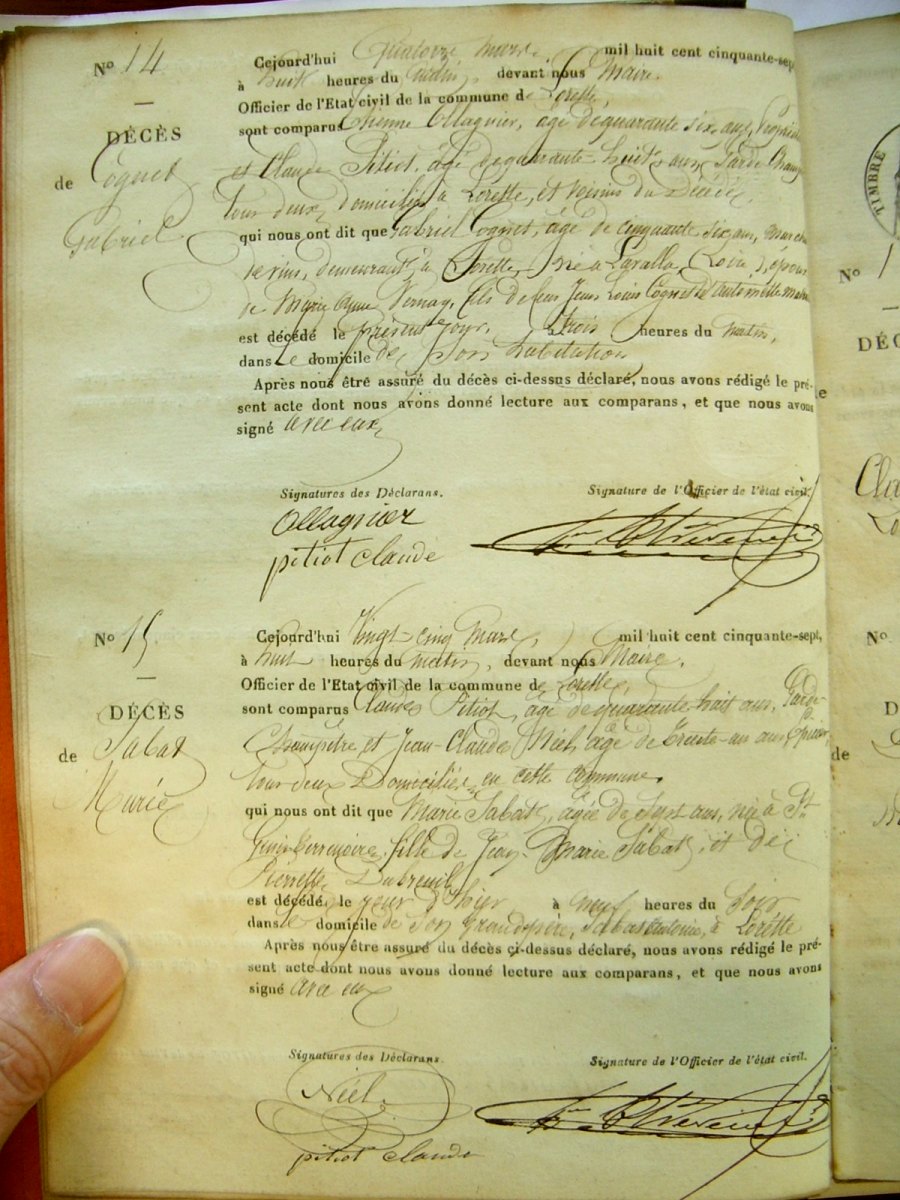 N° 14
DÉCÈS
de Cognet
Gabriel
Cejourd'hui Quatorze mars, mil huit cent cinquante-sept
à huit heures du matin, devant nous Maire.
Officier de l'Etat civil de la commune de Lorette,
sont comparus Etienne Ollagnier, âgé de quarante six ans, Propriét
et Claude Pitiot, âgé de quarante-huit ans, Garde Champ
tous deux domiciliés à Lorette, et
qui nous ont dit que Gabriel Cognet, âgé de cinquante six ans, March
de vins, demeurant à Lorette, né à Lavalla, (Loire), époux
de Marie Anne Vernay, fils de feu Jean Louis Cognet et d'Antoinette
est décédé le présent jour, à trois heures du matin,
dans le domicile de son habitation
Après nous être assuré du décès ci-dessus déclaré, nous avons rédigé le pré-
sent acte dont nous avons donné lecture aux comparans, et que nous avons
signé avec eux
Signatures des Déclarans.
Signature de l'Officier de l'état civil.
Ollagnier
pitiot claude
N° 15
DÉCÈS
de Sabat
Marie
Cejourd'hui Vingt-cinq Mars, mil huit cent cinquante-sept,
à huit heures du matin, devant nous Maire.
Officier de l'Etat civil de la commune de Lorette,
sont comparus Claude Pitiot, âgé de quarante huit ans, Garde
Champêtre et Jean-Claude Néel, âgé de trente-un ans Epicier
tous deux Domiciliés en cette commune.
qui nous ont dit que Marie Sabat, âgée de sept ans, née à St
Genis-terrenoire, fille de Jean Marie Sabat, et de
Pierrette Dubreuil
est décédé le jour d'hier à neuf heures du soir
dans le domicile de son grand-père, Sabat Antoine, à Lorette
Après nous être assuré du décès ci-dessus déclaré, nous avons rédigé le pré-
sent acte dont nous avons donné lecture aux comparans, et que nous avons
signé avec eux
Signatures des Déclarans.
Signature de l'Officier de l'état civil.
Néel
pitiot claude
TIMBRE
N° 1
DÉC
de
Cla
N°
D
de